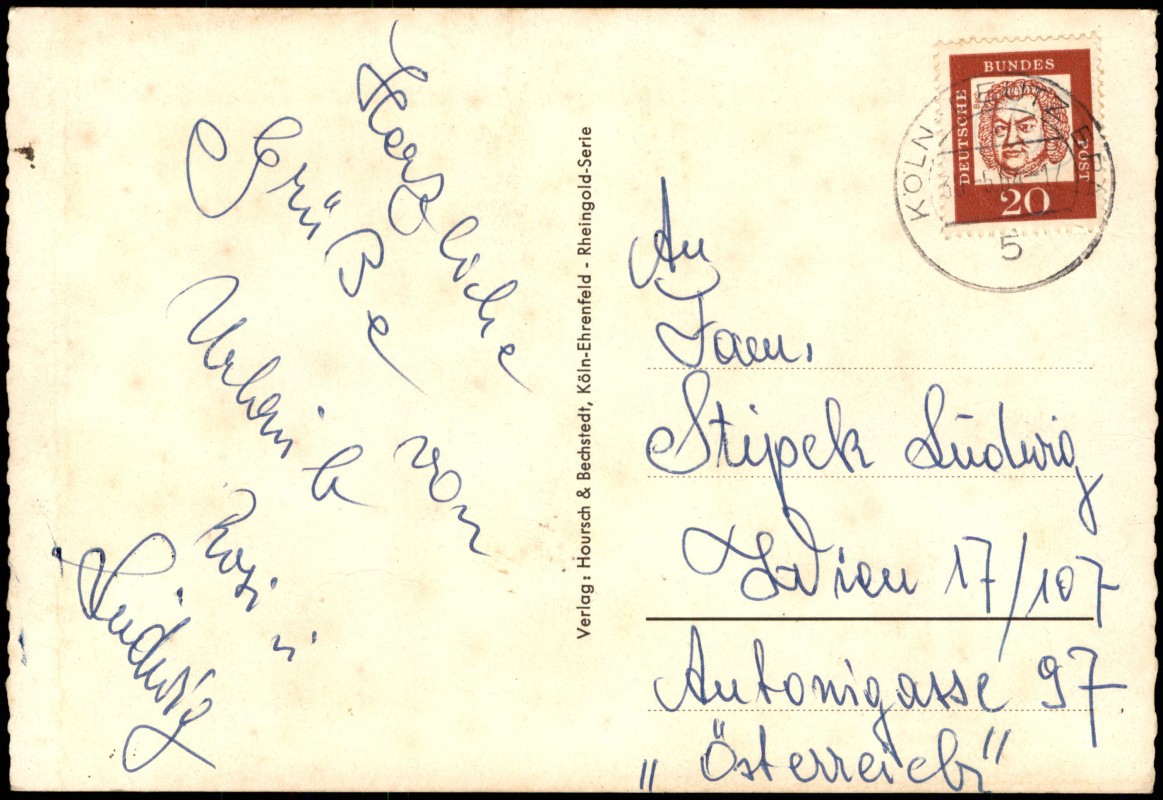 Herzliche
Grüße von
Urlaub
Rosi u
Ludwig
Verlag: Hoursch & Bechstedt, Köln-Ehrenfeld - Rheingold-Serie
DEUTSCHE
BUNDES
POST
20
KÖLN
5
An
Fam.
Stipek Ludwig
Wien 17/107
Antonigasse 97
"Österreich"